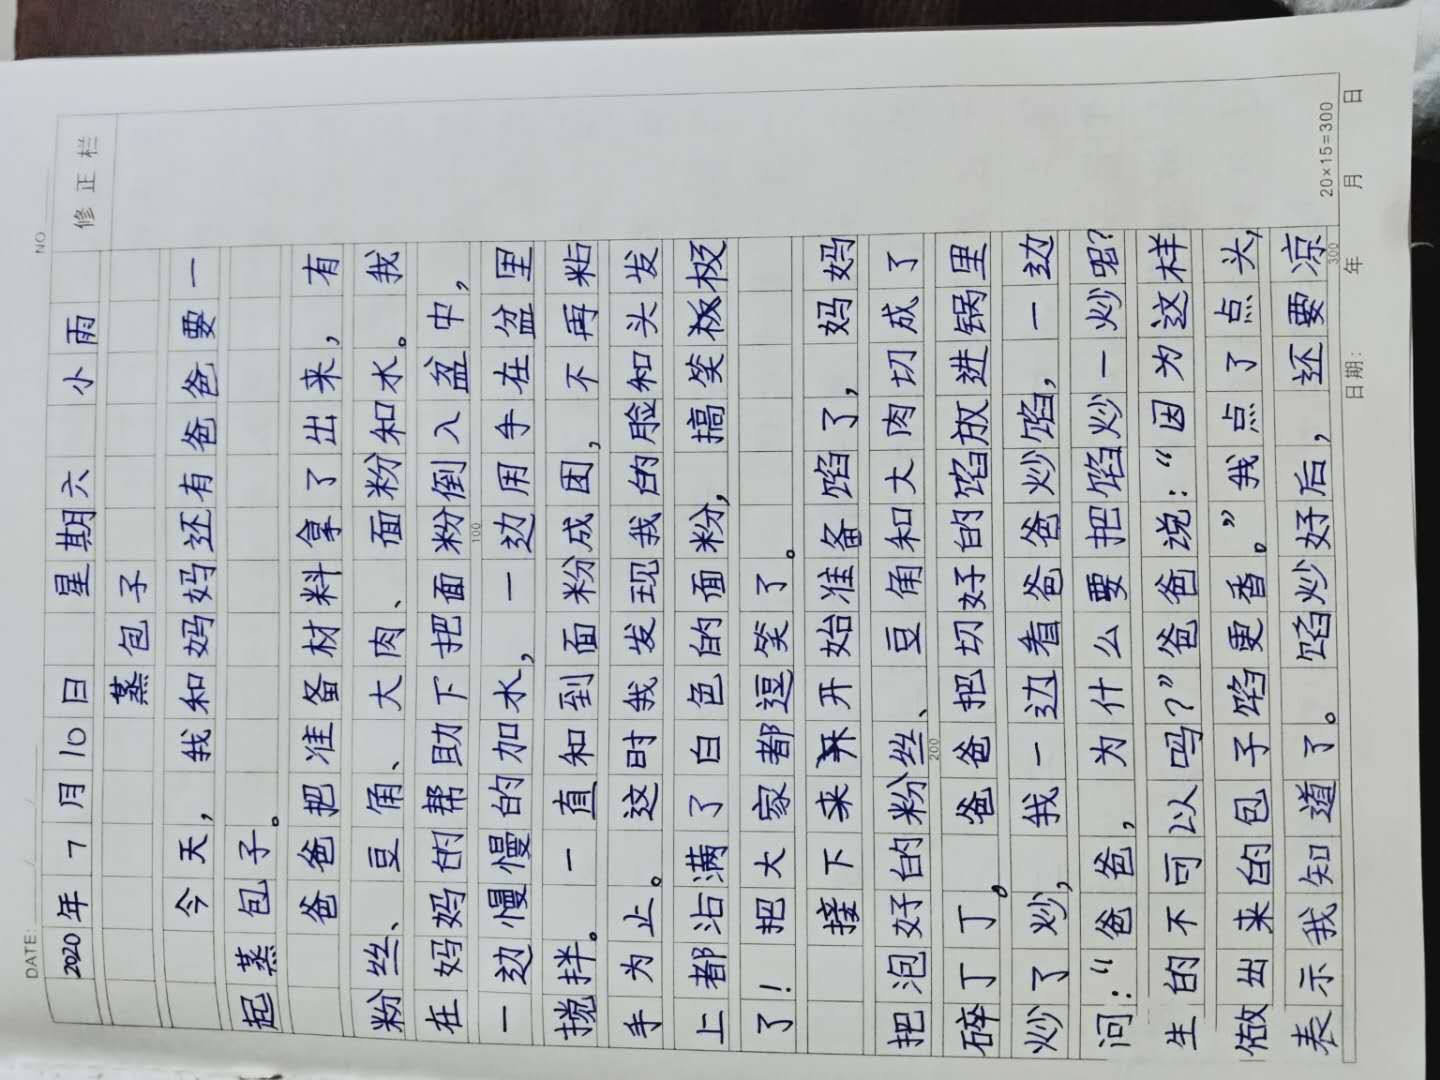 DATE: / /
NO
2020年7月10日 星期六 小雨
修正栏
蒸包子
今天，我和妈妈还有爸爸要一
起蒸包子。
爸爸把准备材料拿了出来，有
粉丝、豆角、大肉、面粉和水。我
在妈妈的帮助下把面粉倒入盆中，
100
一边慢慢的加水，一边用手在盆里
搅拌。一直和到面粉成团，不再粘
手为止。这时我发现我的脸和头发
上都沾满了白色的面粉，搞笑极
了！把大家都逗笑了。
接下来开始准备馅了，妈妈
把泡好的粉丝、豆角和大肉切成了
200
碎丁丁。爸爸把切好的馅放进锅里
炒了炒，我一边看爸爸炒馅，一边
问：“爸爸，为什么要把馅炒一炒呢？
生的不可以吗？”爸爸说：“因为这样
做出来的包子馅更香。”我点了点头，
表示我知道了。馅炒好后，还要凉
300
20×15=300
日期： 年 月 日